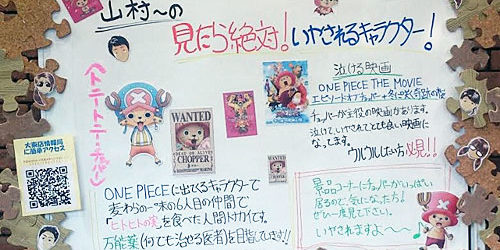 山村〜の
見たら絶対!いやされるキャラクター!
トニートニー・チョッパー
大東店情報局
ご簡単アクセス
WANTED
DEAD OR ALIVE
CHOPPER
WANTED
ONE PIECEに出てくるキャラクターで
麦わらの一味の6人目の仲間で
「ヒトヒトの実」を食べた人間トナカイです。
万能薬(何でも治せる医者)を目指しています!!
泣ける映画
ONE PIECE THE MOVIE
エピソードオブチョッパー+冬に咲く奇跡の桜
チョッパーが主役の映画があります。
泣けていやされてとても良い映画に
なってます。
ウルウルしたい方必見!!
景品コーナーにチョッパーがいっぱい
居るので、気になった方!
ぜひ一度見て下さい。
いやされますよ〜